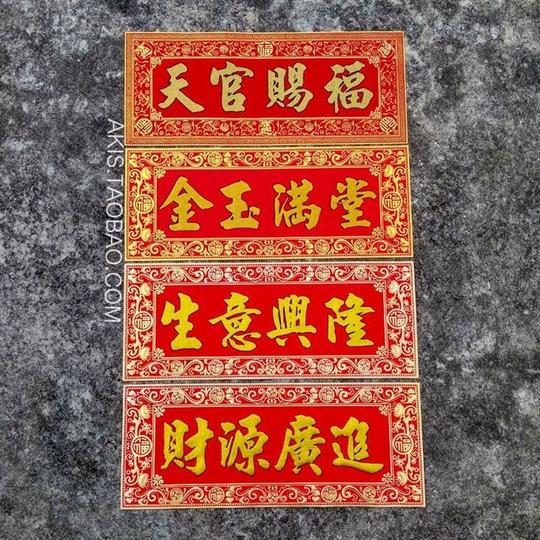 天官賜福
金玉滿堂
生意興隆
財源廣進
AKIS.TAOBAO.COM